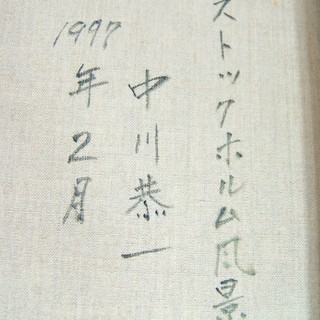 ストックホルム風景
中川恭一
1997年2月